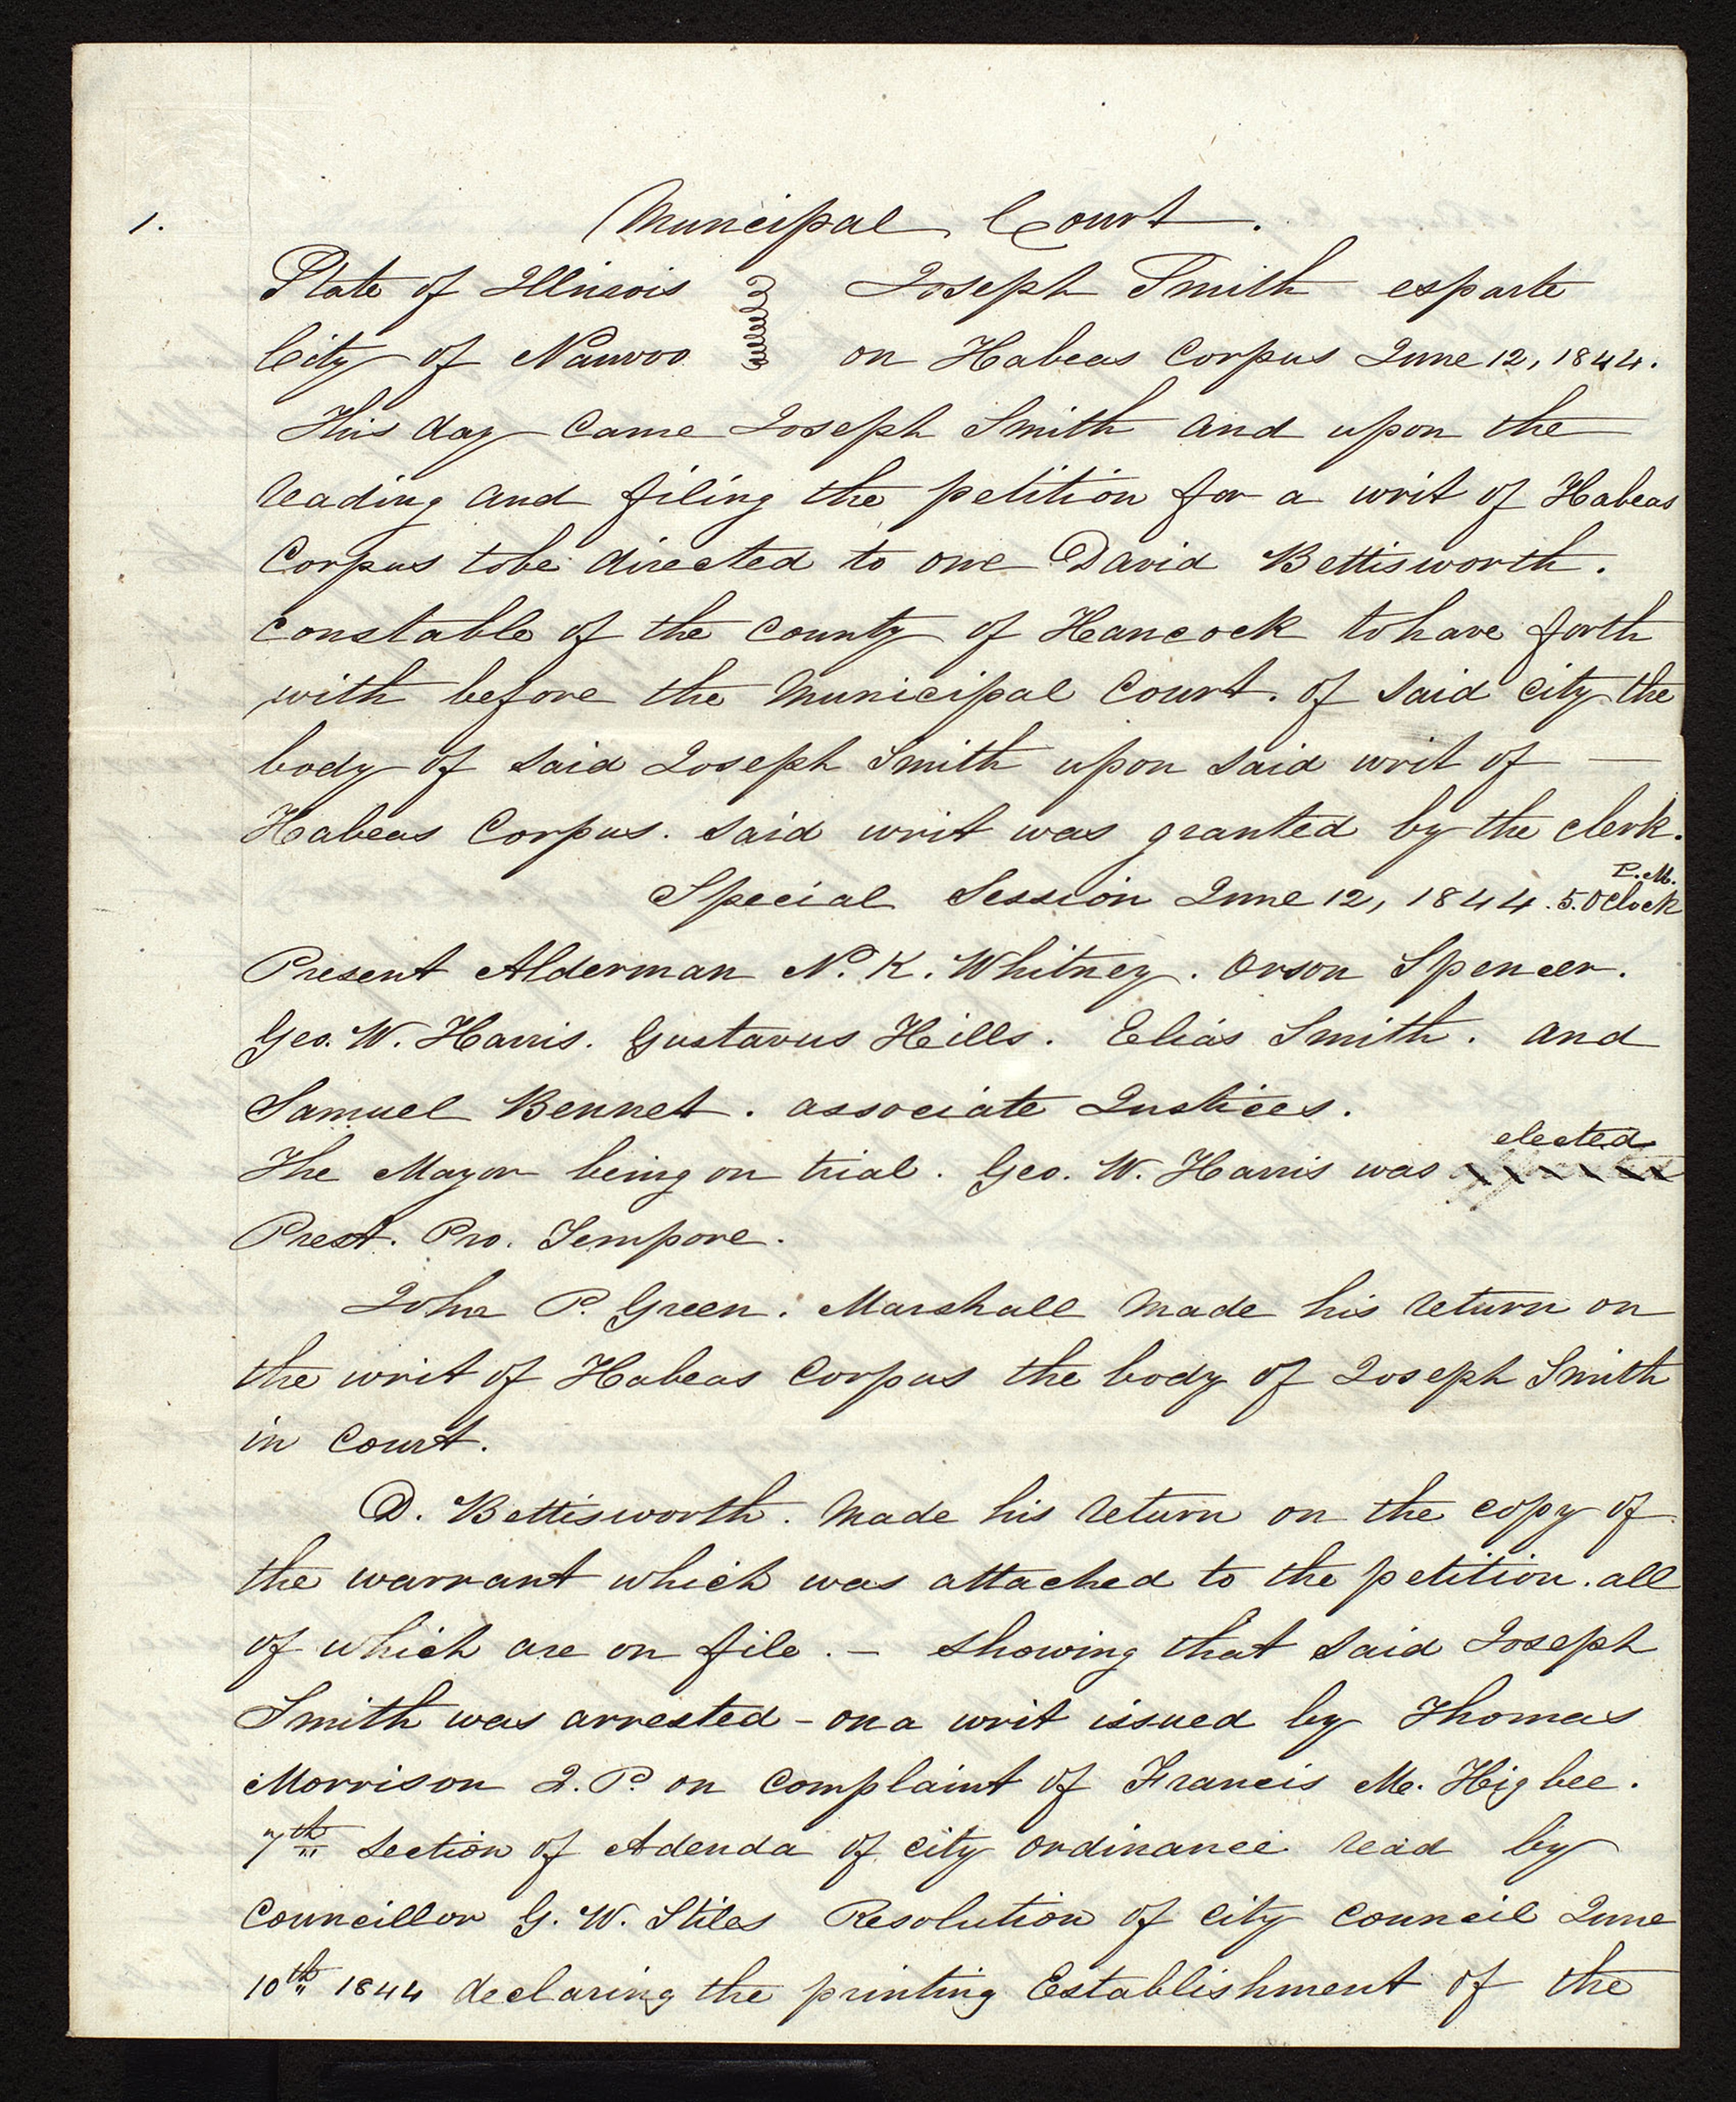 1.
Municipal Court.
State of Illinois Joseph Smith exparte
City of Nauvoo on Habeas Corpus June 12, 1844.
This day Came Joseph Smith and upon the
reading and filing the petition for a writ of Habeas
Corpus tobe directed to one David Bettisworth.
Constable of the County of Hancock tohave forth
with before the Municipal Court. of said city the
body of said Joseph Smith upon said writ of —
Habeas Corpus. said writ was granted by the clerk.
P.M.
Special Session June 12, 1844. 5.Oclock
Present Alderman N. K. Whitney. Orson Spencer.
Geo. W. Harris. Gustavus Hills. Elias Smith. and
Samuel Bennet. associate Justices.
elected
The Mayor being on trial. Geo. W. Harris was
Prest. Pro. Tempore.
John P. Green. Marshall made his return on
the writ of Habeas Corpus the body of Joseph Smith
in Court.
D. Bettisworth. made his return on the copy of
the warrant which was attached to the petition. all
of which are on file. — showing that said Joseph
Smith was arrested – on a writ issued by Thomas
Morrison J.P. on complaint of Francis M. Higbee.
7th section of Adenda of city ordinance read by
Councillor G. W. Stiles Resolution of city council June
10th 1844 declaring the printing Establishment of the